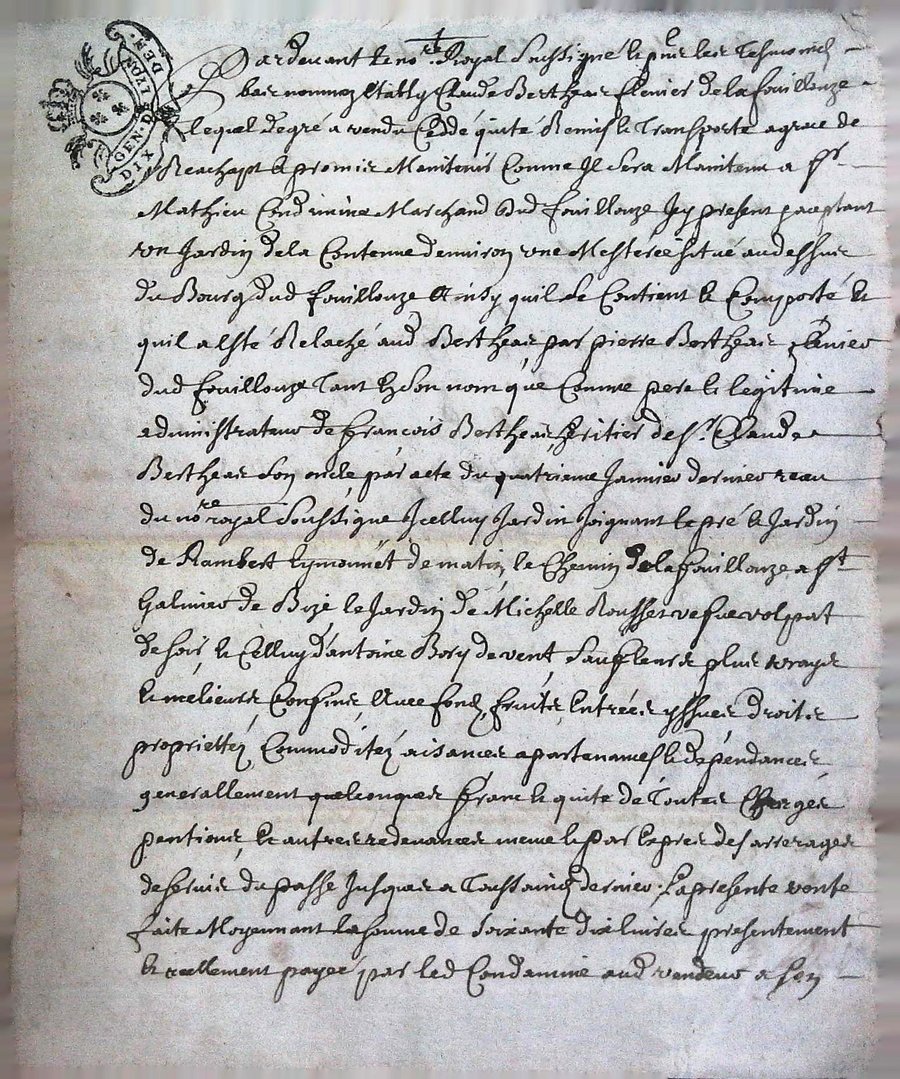 GEN. DE LYON
DIX DEN.
Pardevant le no.re Royal soussigné et pnts les tesmoings
bas nommez estably Claude Berthear clenier de la fouillouze
lequel de gré a vendu ceddé quité Remis et Transporté a grace de
Reachapt et promis Maintenir Comme Il sera Maintenu a sr
Mathieu Condamine Marchand dud fouillouze Icy present pacceptant
un Jardin de la Contenue d'environ une Mesterée situé au dessus
du Bourg dud fouillouze Ainsy quil se Contient et Comporte et
quil a esté Relaché aud Berthear par pierre Berthear
dud fouillouze Tant En son nom que Comme pere et legitime
administrateur de françois Berthear heritier de sr. Claude
Berthear son oncle par acte du quatrieme Janvier dernier receu
du no.re royal soussigné Icelluy Jardin Joignant le pré et Jardin
de Rambert de matin, le Chemin de la fouillouze a st
Galmier de Bize le Jardin de Michelle Rousset vefue volpat
de soir, et Celluy d'antoine Bory de vent, sauf leurs plus vrayes
et melieurs Confins, Avec fonds, fruits, Entrées yssues droits
proprietez Commoditez aisances apartenances et dependances
generallement quelconques franc et quite de Toutes Charges
pentions, et autres redevances meme et par expres des arrerages
de servis du passe Jusques a Toussains dernier. La presente vente
faite Moyennant la somme de soixante dix livres presentement
et reellement payée par led Condamine aud vendeur a son